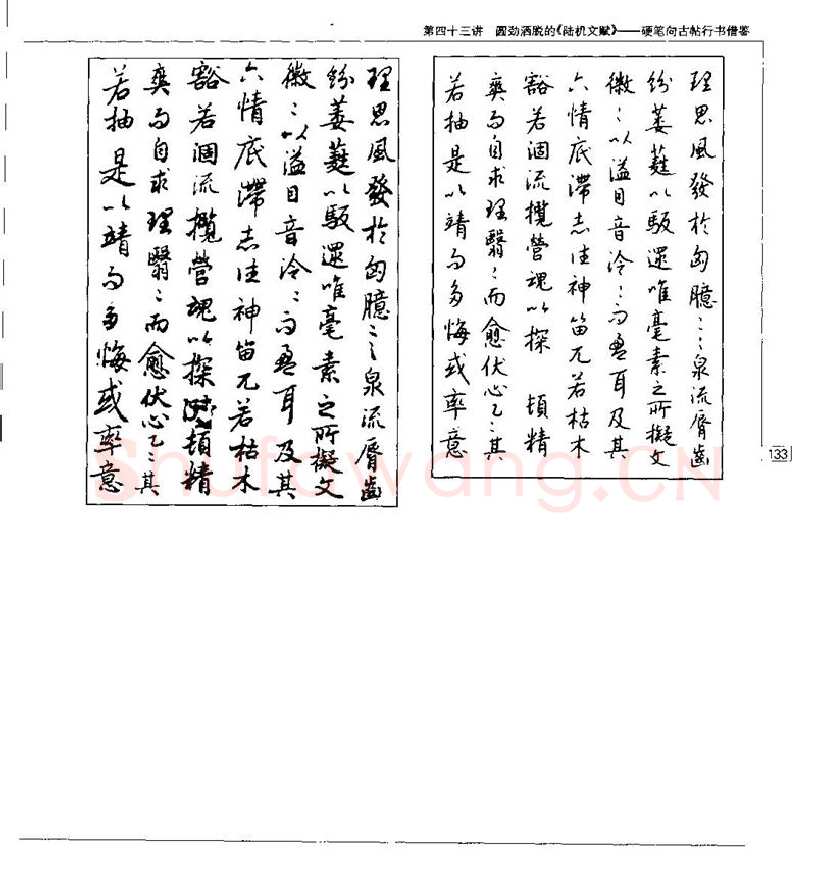 第四十三讲　圆劲洒脱的《陆机文赋》——硬笔向古帖行书借鉴
理思風發於匈臆〻〻泉流脣齒
紛葳蕤以馺遝唯毫素之所擬文
徽〻以溢目音泠〻而盈耳及其
六情底滯志往神留兀若枯木
豁若涸流攬營魂以探頓精
爽而自求理翳〻而愈伏心乙〻其
若抽是以竭而多悔或率意
理思風發於匈臆〻〻泉流脣齒
紛葳蕤以馺遝唯毫素之所擬文
徽〻以溢目音泠〻而盈耳及其
六情底滯志往神留兀若枯木
豁若涸流攬營魂以探頓精
爽而自求理翳〻而愈伏心乙〻其
若抽是以竭而多悔或率意
133
Shufawang.CN